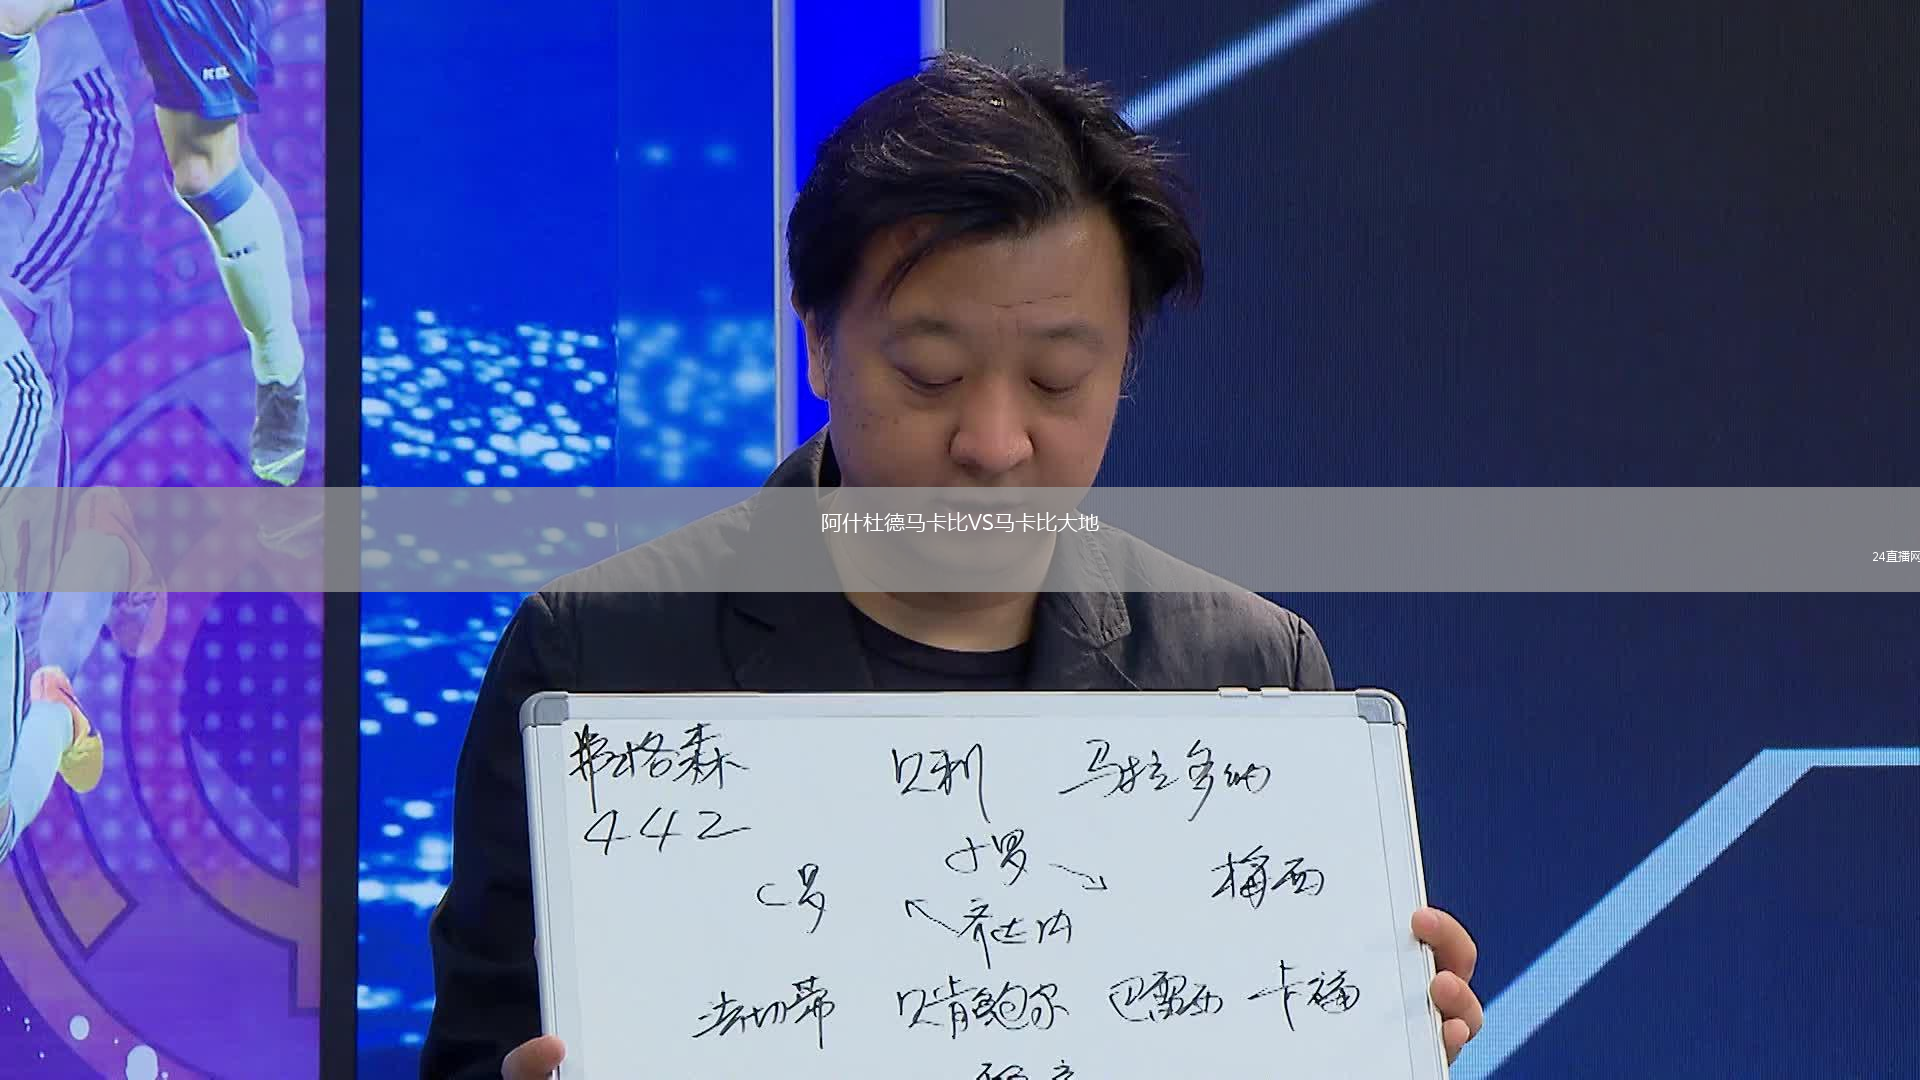 阿什杜德马卡比VS马卡比大地
24直播网
弗格森 贝利 马拉多纳
442
小罗
C罗 梅西
齐达内
法切蒂 贝肯鲍尔 巴雷西 卡福